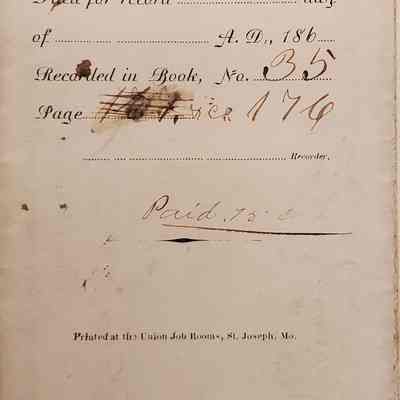 Filed for record day
of A. D., 186
Recorded in Book, No. 35
Page 176
Recorder.
Paid. 75
Printed at the Union Job Rooms, St. Joseph, Mo.